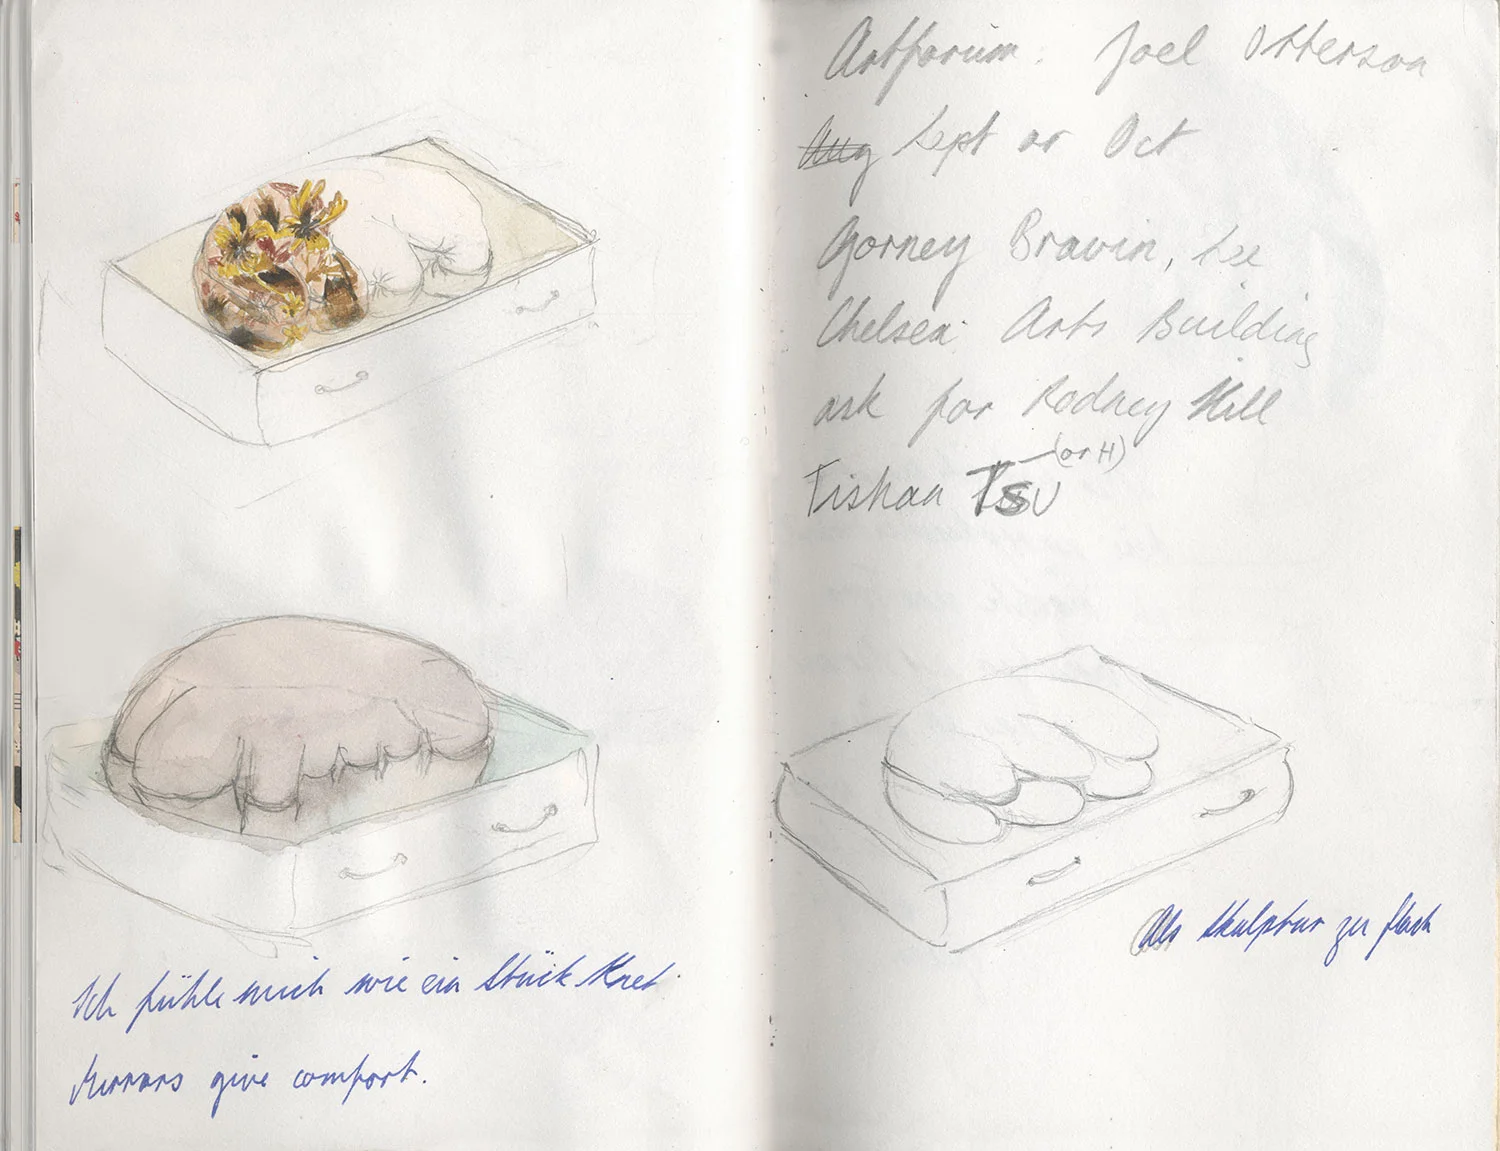 Ich fühle mich wie ein Stück Knet
Mirrors give comfort.
Artforum: Joel Otterson
Aug Sept or Oct
Gorney Bravin, Lee
Chelsea Arts Building
ask for Rodney Hill
(or H)
Tishan TSU
Als Skulptur zu flach